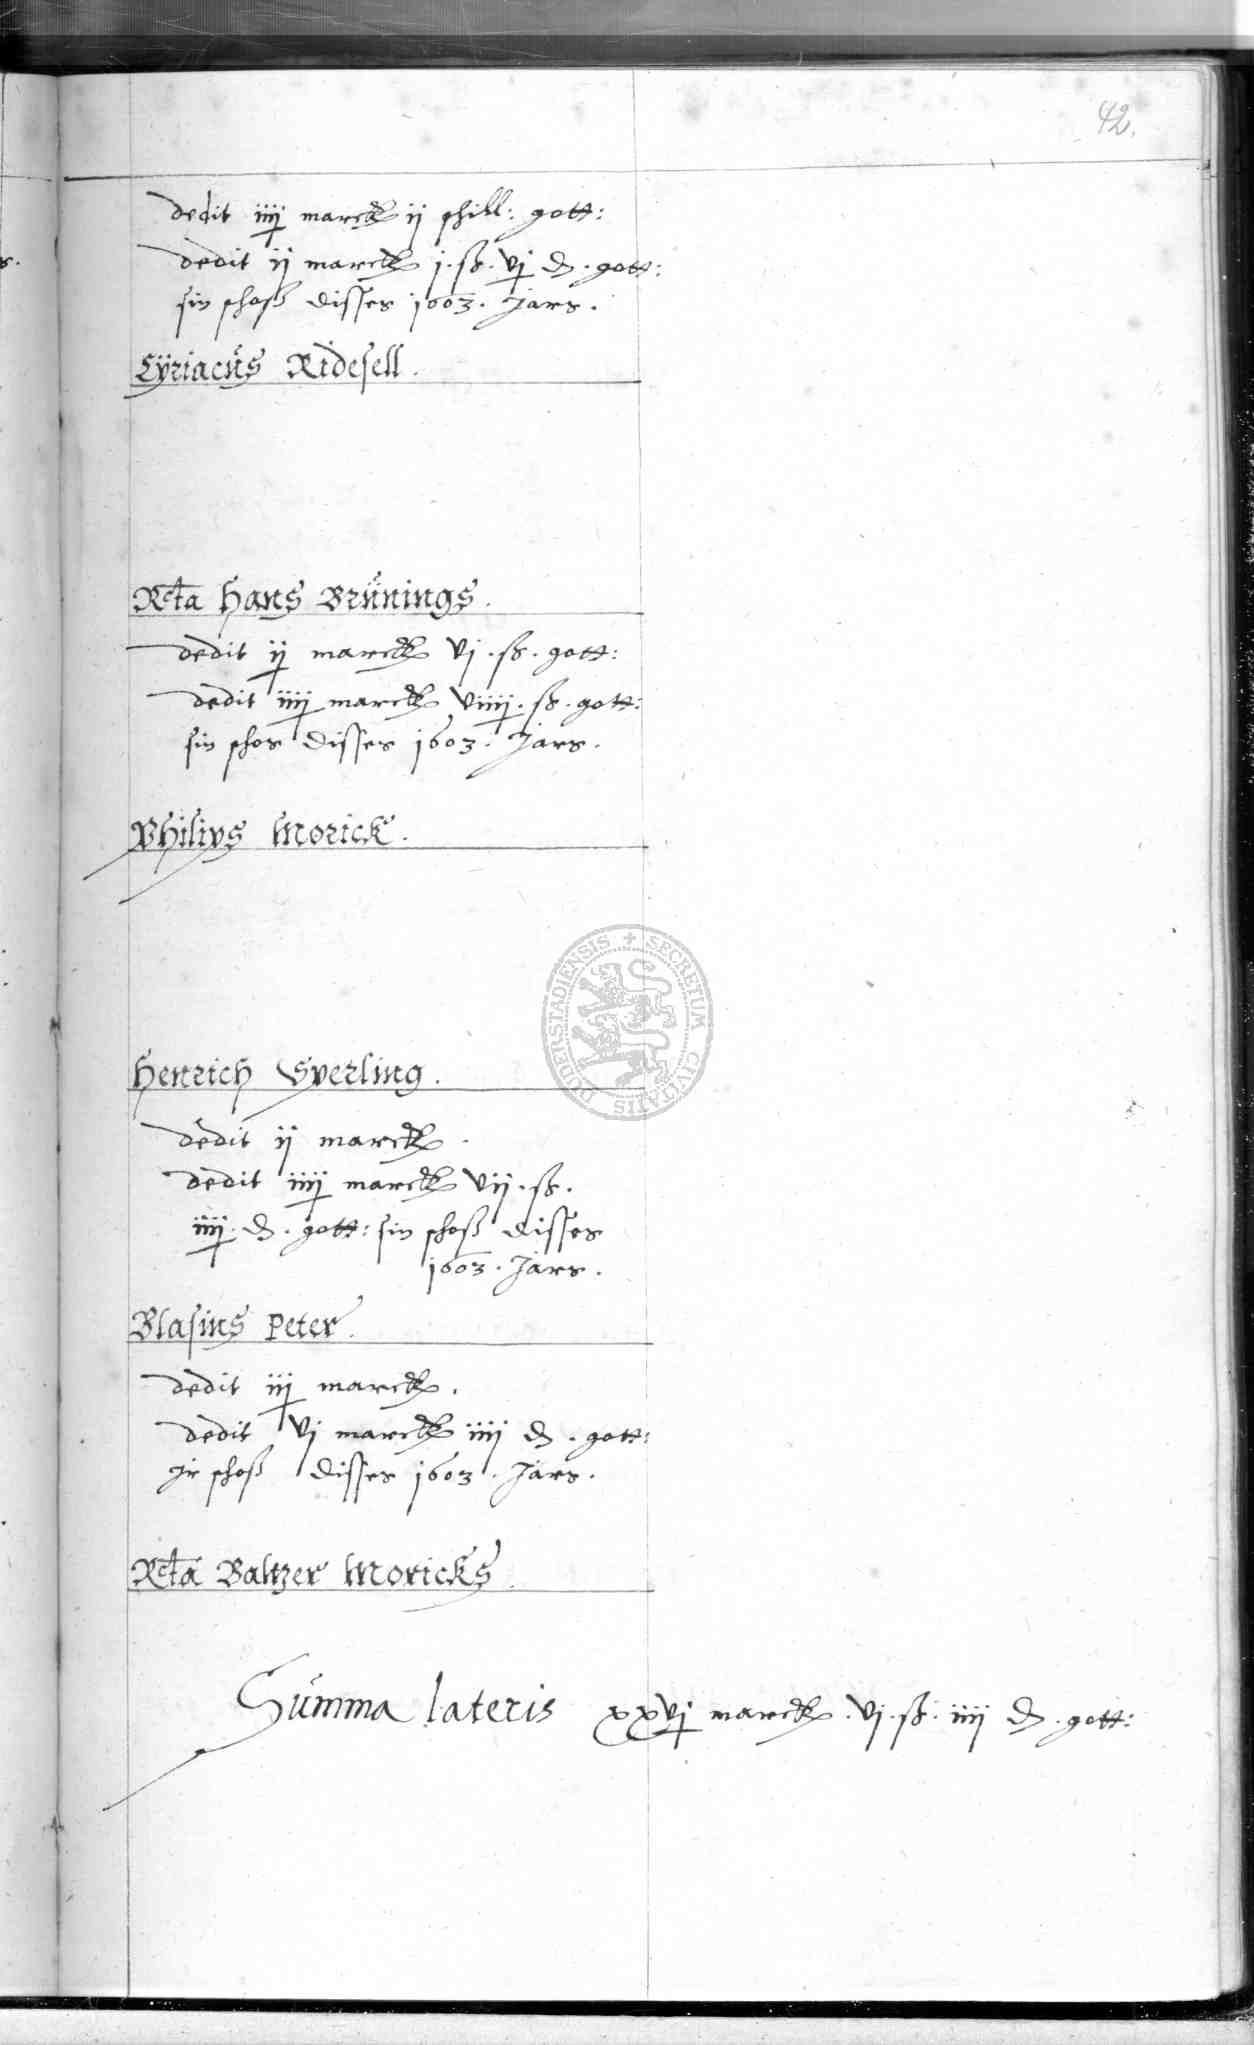 42.
dedit iiij marck ij schill: gott:
dedit ij marck j. ß. vj d. gott:
sin schoß disses 1603. Jars.
Cÿriacus Ridesell.
Rcta Hans Brunings.
dedit ij marck vj. ß. gott:
dedit iiij marck viiij. ß. gott:
sin schos disses 1603. Jars.
Philips Morick.
Henrich Sperling.
dedit ij marck.
dedit iiij marck vij. ß.
iiij. d. gott: sin schoß disses
1603. Jars.
Blasius Peter.
dedit iij marck.
dedit vj marck iiij d. gott:
Jr schoß disses 1603. Jars.
Rcta Baltzer Moricks.
Summa lateris xxvj marck. vj. ß. iiij d. gott:
DUDERSTADIENSIS + SECRETUM CIVITATIS